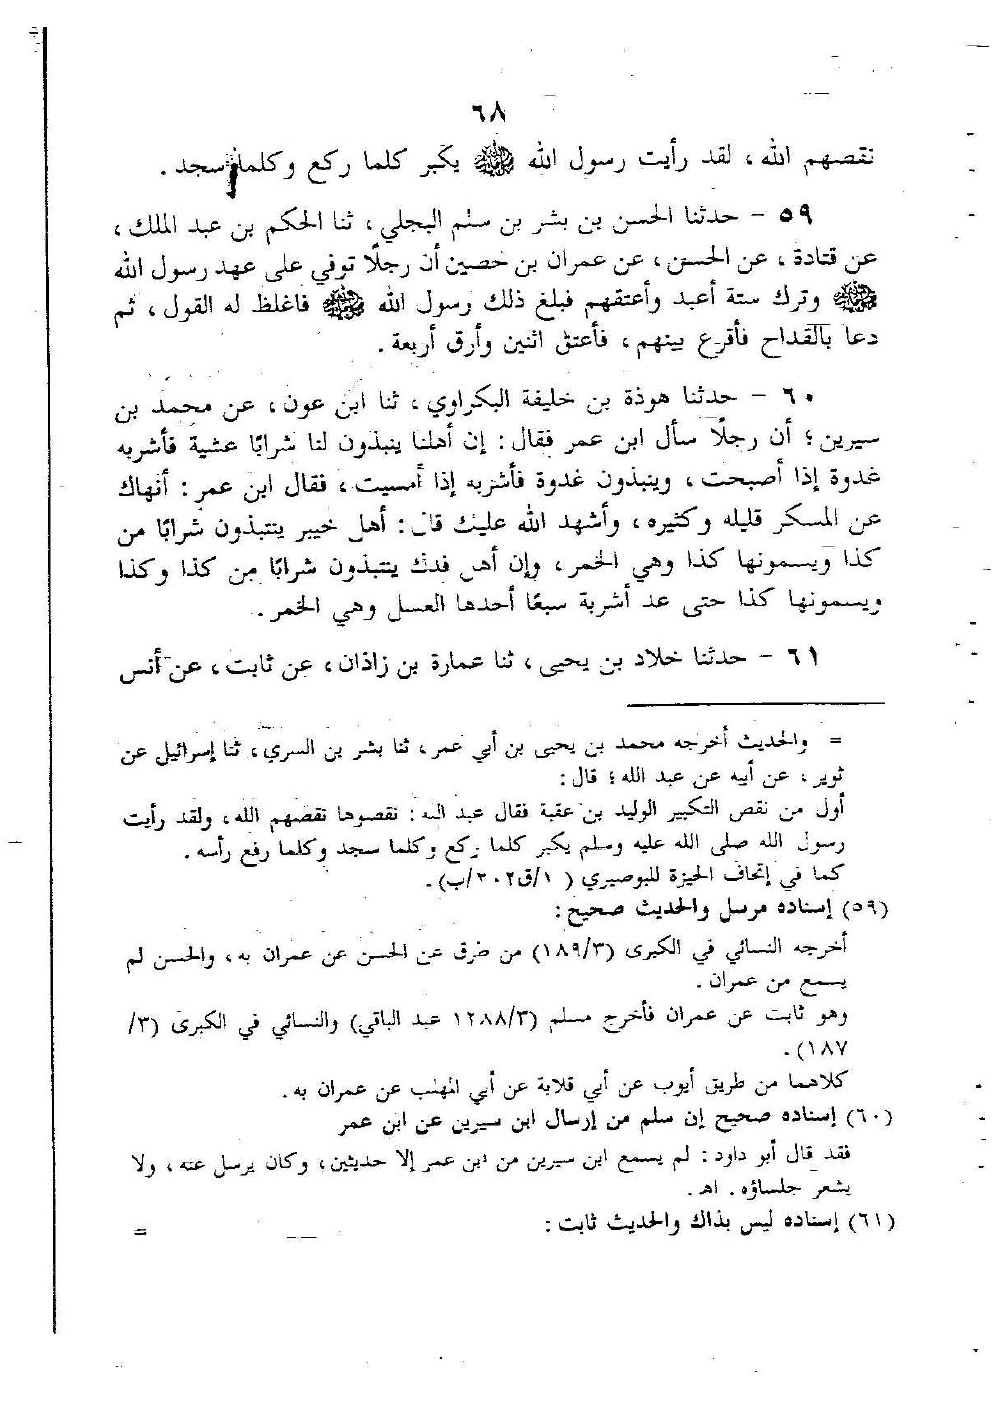 ٦٨
نقصهم الله ، لقد رأيت رسول الله ﷺ يكبر كلما ركع وكلما سجد .
٥٩ - حدثنا الحسن بن بشر بن سلم البجلي ، ثنا الحكم بن عبد الملك ،
عن قتادة ، عن الحسن ، عن عمران بن حصين أن رجلًا توفي على عهد رسول الله
ﷺ وترك ستة أعبد وأعتقهم فبلغ ذلك رسول الله ﷺ فاغلظ له القول ، ثم
دعا بالقداح فأقرع بينهم ، فأعتق اثنين وأرق أربعة .
٦٠ - حدثنا هوذة بن خليفة البكراوي ، ثنا ابن عون ، عن محمد بن
سيرين ؛ أن رجلًا سأل ابن عمر فقال : إن أهلنا ينبذون لنا شرابًا عشية فأشربه
غدوة إذا أصبحت ، وينبذون غدوة فأشربه إذا أمسيت ، فقال ابن عمر : أنهاك
عن المسكر قليله وكثيره ، وأشهد الله عليك قال : أهل خيبر ينتبذون شرابًا من
كذا ويسمونها كذا وهي الخمر ، وإن أهل فدك ينتبذون شرابًا من كذا وكذا
ويسمونها كذا حتى عد أشربة سبعًا أحدها العسل وهي الخمر .
٦١ - حدثنا خلاد بن يحيى ، ثنا عمارة بن زاذان ، عن ثابت ، عن أنس
= والحديث أخرجه محمد بن يحيى بن أبي عمر ، ثنا بشر بن السري ، ثنا إسرائيل عن
ثوير ، عن أبيه عن عبد الله ؛ قال :
أول من نقص التكبير الوليد بن عقبة فقال عبد الله : نقصوها نقصهم الله ، ولقد رأيت
رسول الله صلى الله عليه وسلم يكبر كلما ركع وكلما سجد وكلما رفع رأسه .
كما في إتحاف الخيرة للبوصيري ( ١/ق٢٠٢/ب) .
(٥٩) إسناده مرسل والحديث صحيح :
أخرجه النسائي في الكبرى (١٨٩/٣) من طرق عن الحسن عن عمران به ، والحسن لم
يسمع من عمران .
وهو ثابت عن عمران فأخرج مسلم (١٢٨٨/٣ عبد الباقي) والنسائي في الكبرى (٣/
١٨٧) .
كلاهما من طريق أيوب عن أبي قلابة عن أبي المهلب عن عمران به .
(٦٠) إسناده صحيح إن سلم من إرسال ابن سيرين عن ابن عمر
فقد قال أبو داود : لم يسمع ابن سيرين من ابن عمر إلا حديثين ، وكان يرسل عنه ، ولا
يشعر جلساؤه . اهـ .
(٦١) إسناده ليس بذاك والحديث ثابت :
=